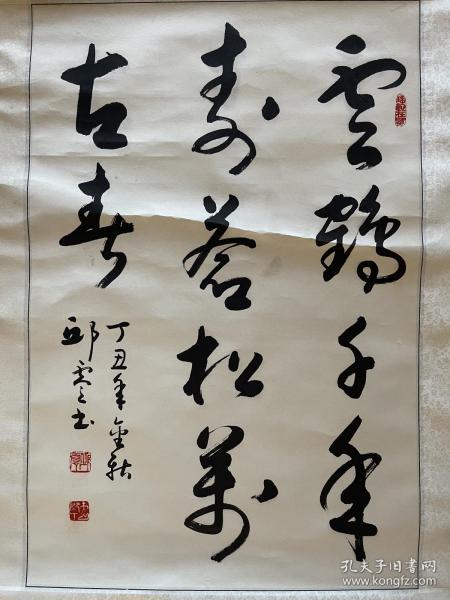 雲鶴千年
壽蒼松萬
古春
丁丑年金秋
邱雲书
孔夫子旧书网
www.kongfz.com